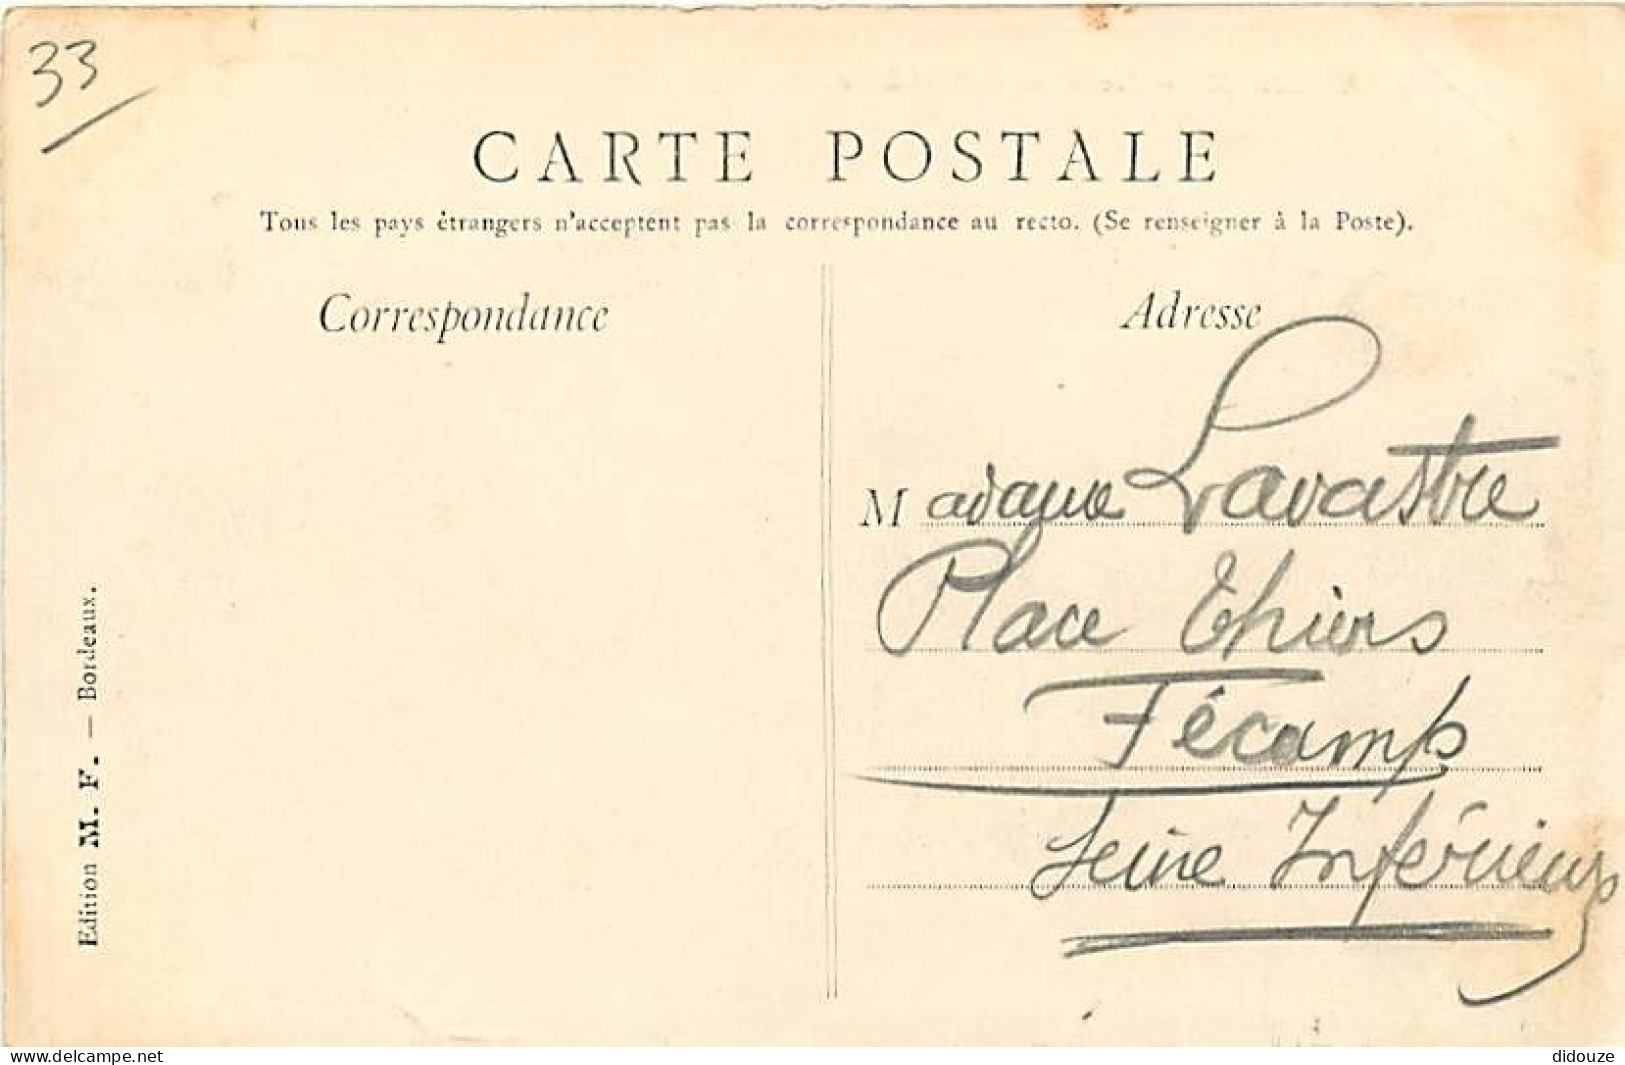 33
CARTE POSTALE
Tous les pays étrangers n'acceptent pas la correspondance au recto. (Se renseigner à la Poste).
Correspondance
Adresse
Madame Lavastre
Place Thiers
Fécamp
Seine Inférieure
Edition M. F. — Bordeaux.
www.delcampe.net
didouze